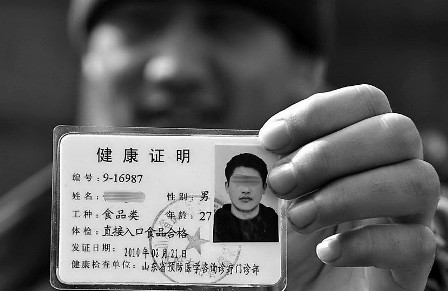 健康证明
编号：9-16987
姓名：
性别：男
工种：食品类 年龄：27
体检：直接入口食品合格
发证日期：2010年02月21日
健康检查单位：山东省预防医学咨询诊疗门诊部